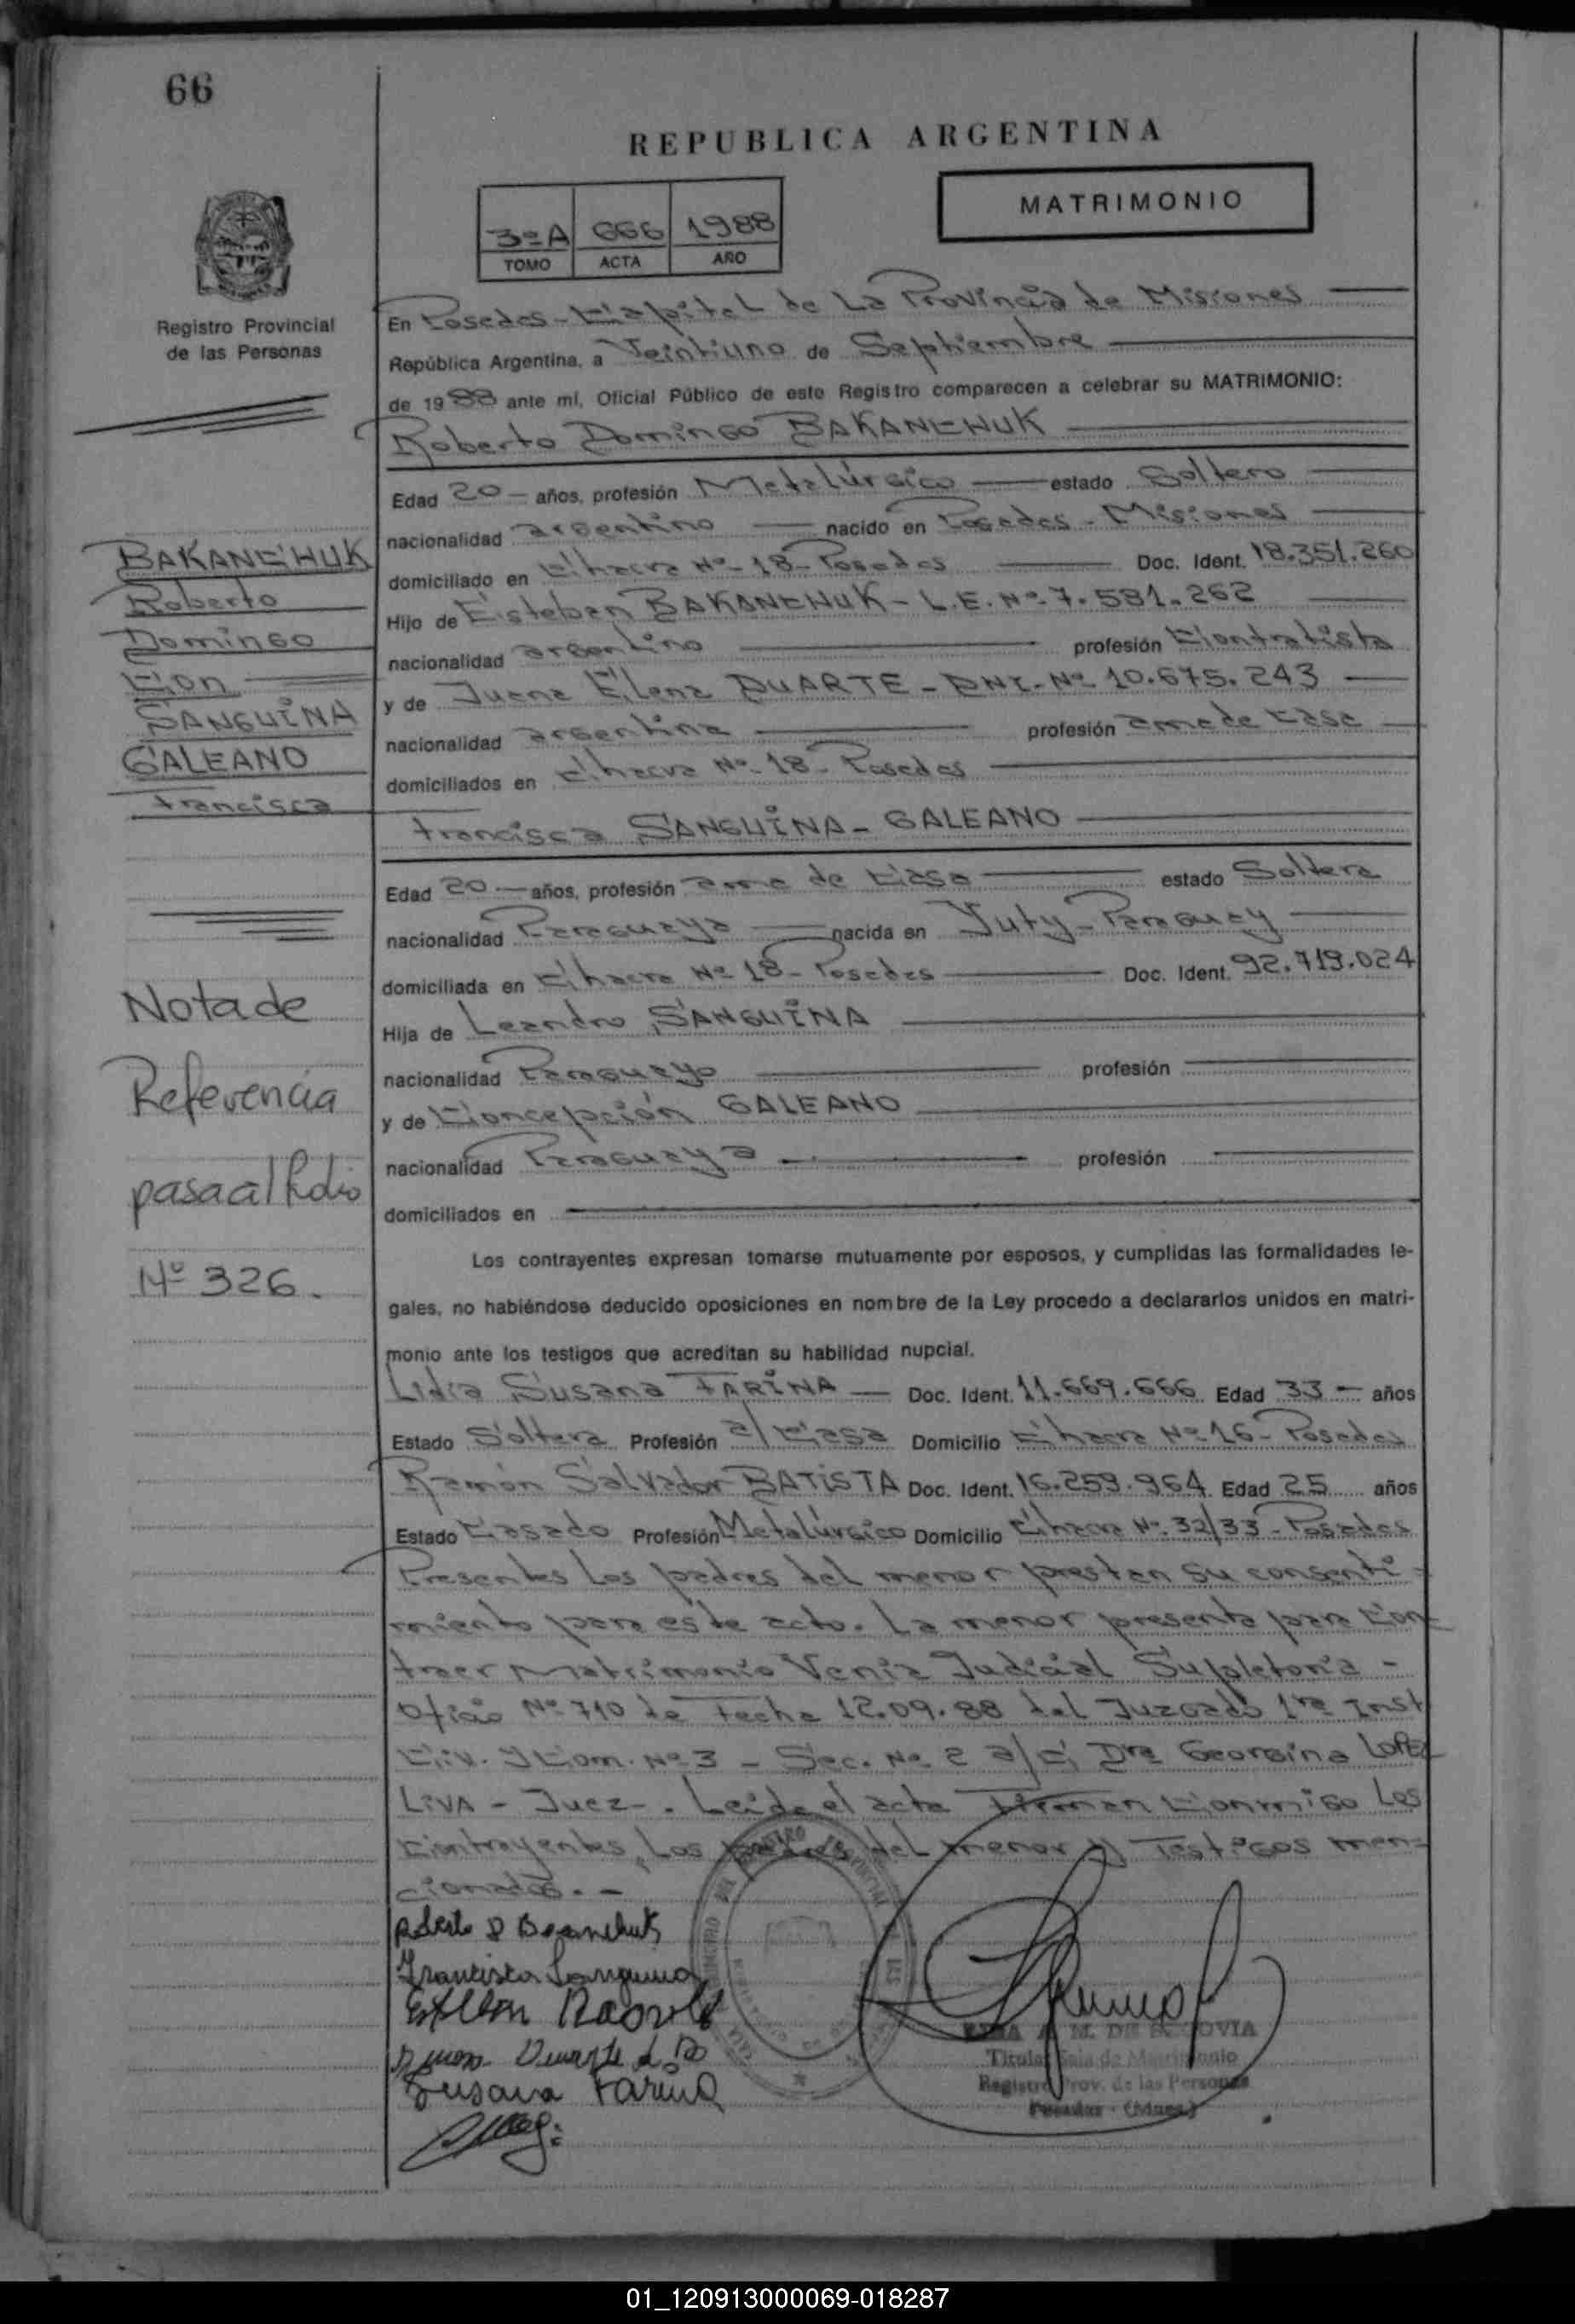 66
REPUBLICA ARGENTINA
MATRIMONIO
3º A 666 1988
TOMO ACTA AÑO
Registro Provincial
de las Personas
En Posadas - Capital de La Provincia de Misiones
República Argentina, a Veintiuno de Septiembre
de 1988 ante mí, Oficial Público de este Registro comparecen a celebrar su MATRIMONIO:
Roberto Domingo BAKANCHUK
Edad 20 - años, profesión Metalúrgico estado Soltero
nacionalidad argentino nacido en Posadas - Misiones
domiciliado en Chacra Nº 18 - Posadas Doc. Ident. 18.351.260
Hijo de Esteban BAKANCHUK - L.E. Nº 7.581.262
nacionalidad argentino profesión Contratista
y de Juana Elena DUARTE - DNI - Nº 10.675.243
nacionalidad argentina profesión ama de Casa
domiciliados en Chacra Nº 18 - Posadas
Francisca SANGUINA - GALEANO
Edad 20 - años, profesión ama de Casa estado Soltera
nacionalidad Paraguaya nacida en Yuty - Paraguay
domiciliada en Chacra Nº 18 - Posadas Doc. Ident. 92.719.024
Hija de Leandro SANGUINA
nacionalidad Paraguayo profesión
y de Concepción GALEANO
nacionalidad Paraguaya profesión
domiciliados en
Los contrayentes expresan tomarse mutuamente por esposos, y cumplidas las formalidades le-
gales, no habiéndose deducido oposiciones en nombre de la Ley procedo a declararlos unidos en matri-
monio ante los testigos que acreditan su habilidad nupcial.
Lidia Susana FARINA - Doc. Ident. 11.669.666 Edad 33 - años
Estado Soltera Profesión a/ Casa Domicilio Chacra Nº 16 - Posadas
Ramón Salvador BATISTA Doc. Ident. 16.259.964 Edad 25 años
Estado Casado Profesión Metalúrgico Domicilio Chacra Nº 32/33 - Posadas
Presentes Los padres del menor prestan su consenti-
miento para este acto. La menor presenta para Con-
traer Matrimonio Venia Judicial Supletoria -
Oficio Nº 710 de Fecha 12.09.88 del Juzgado 1ra Inst
Civ. y Com. Nº 3 - Sec. Nº 2 a/c Dra Georgina LOPEZ
LIVA - Juez -. Leida el acta Firman Conmigo Los
Contrayentes, Los padres del menor y Testigos men-
cionados. -
BAKANCHUK
Roberto
Domingo
Con
SANGUINA
GALEANO
Francisca
Nota de
Referencia
pasa al Folio
Nº 326.
Francisca Sanguina
Susana Farina
Titular Sala de Matrimonio
Registro Prov. de las Personas
Posadas - (Mnes.)
01_120913000069-018287